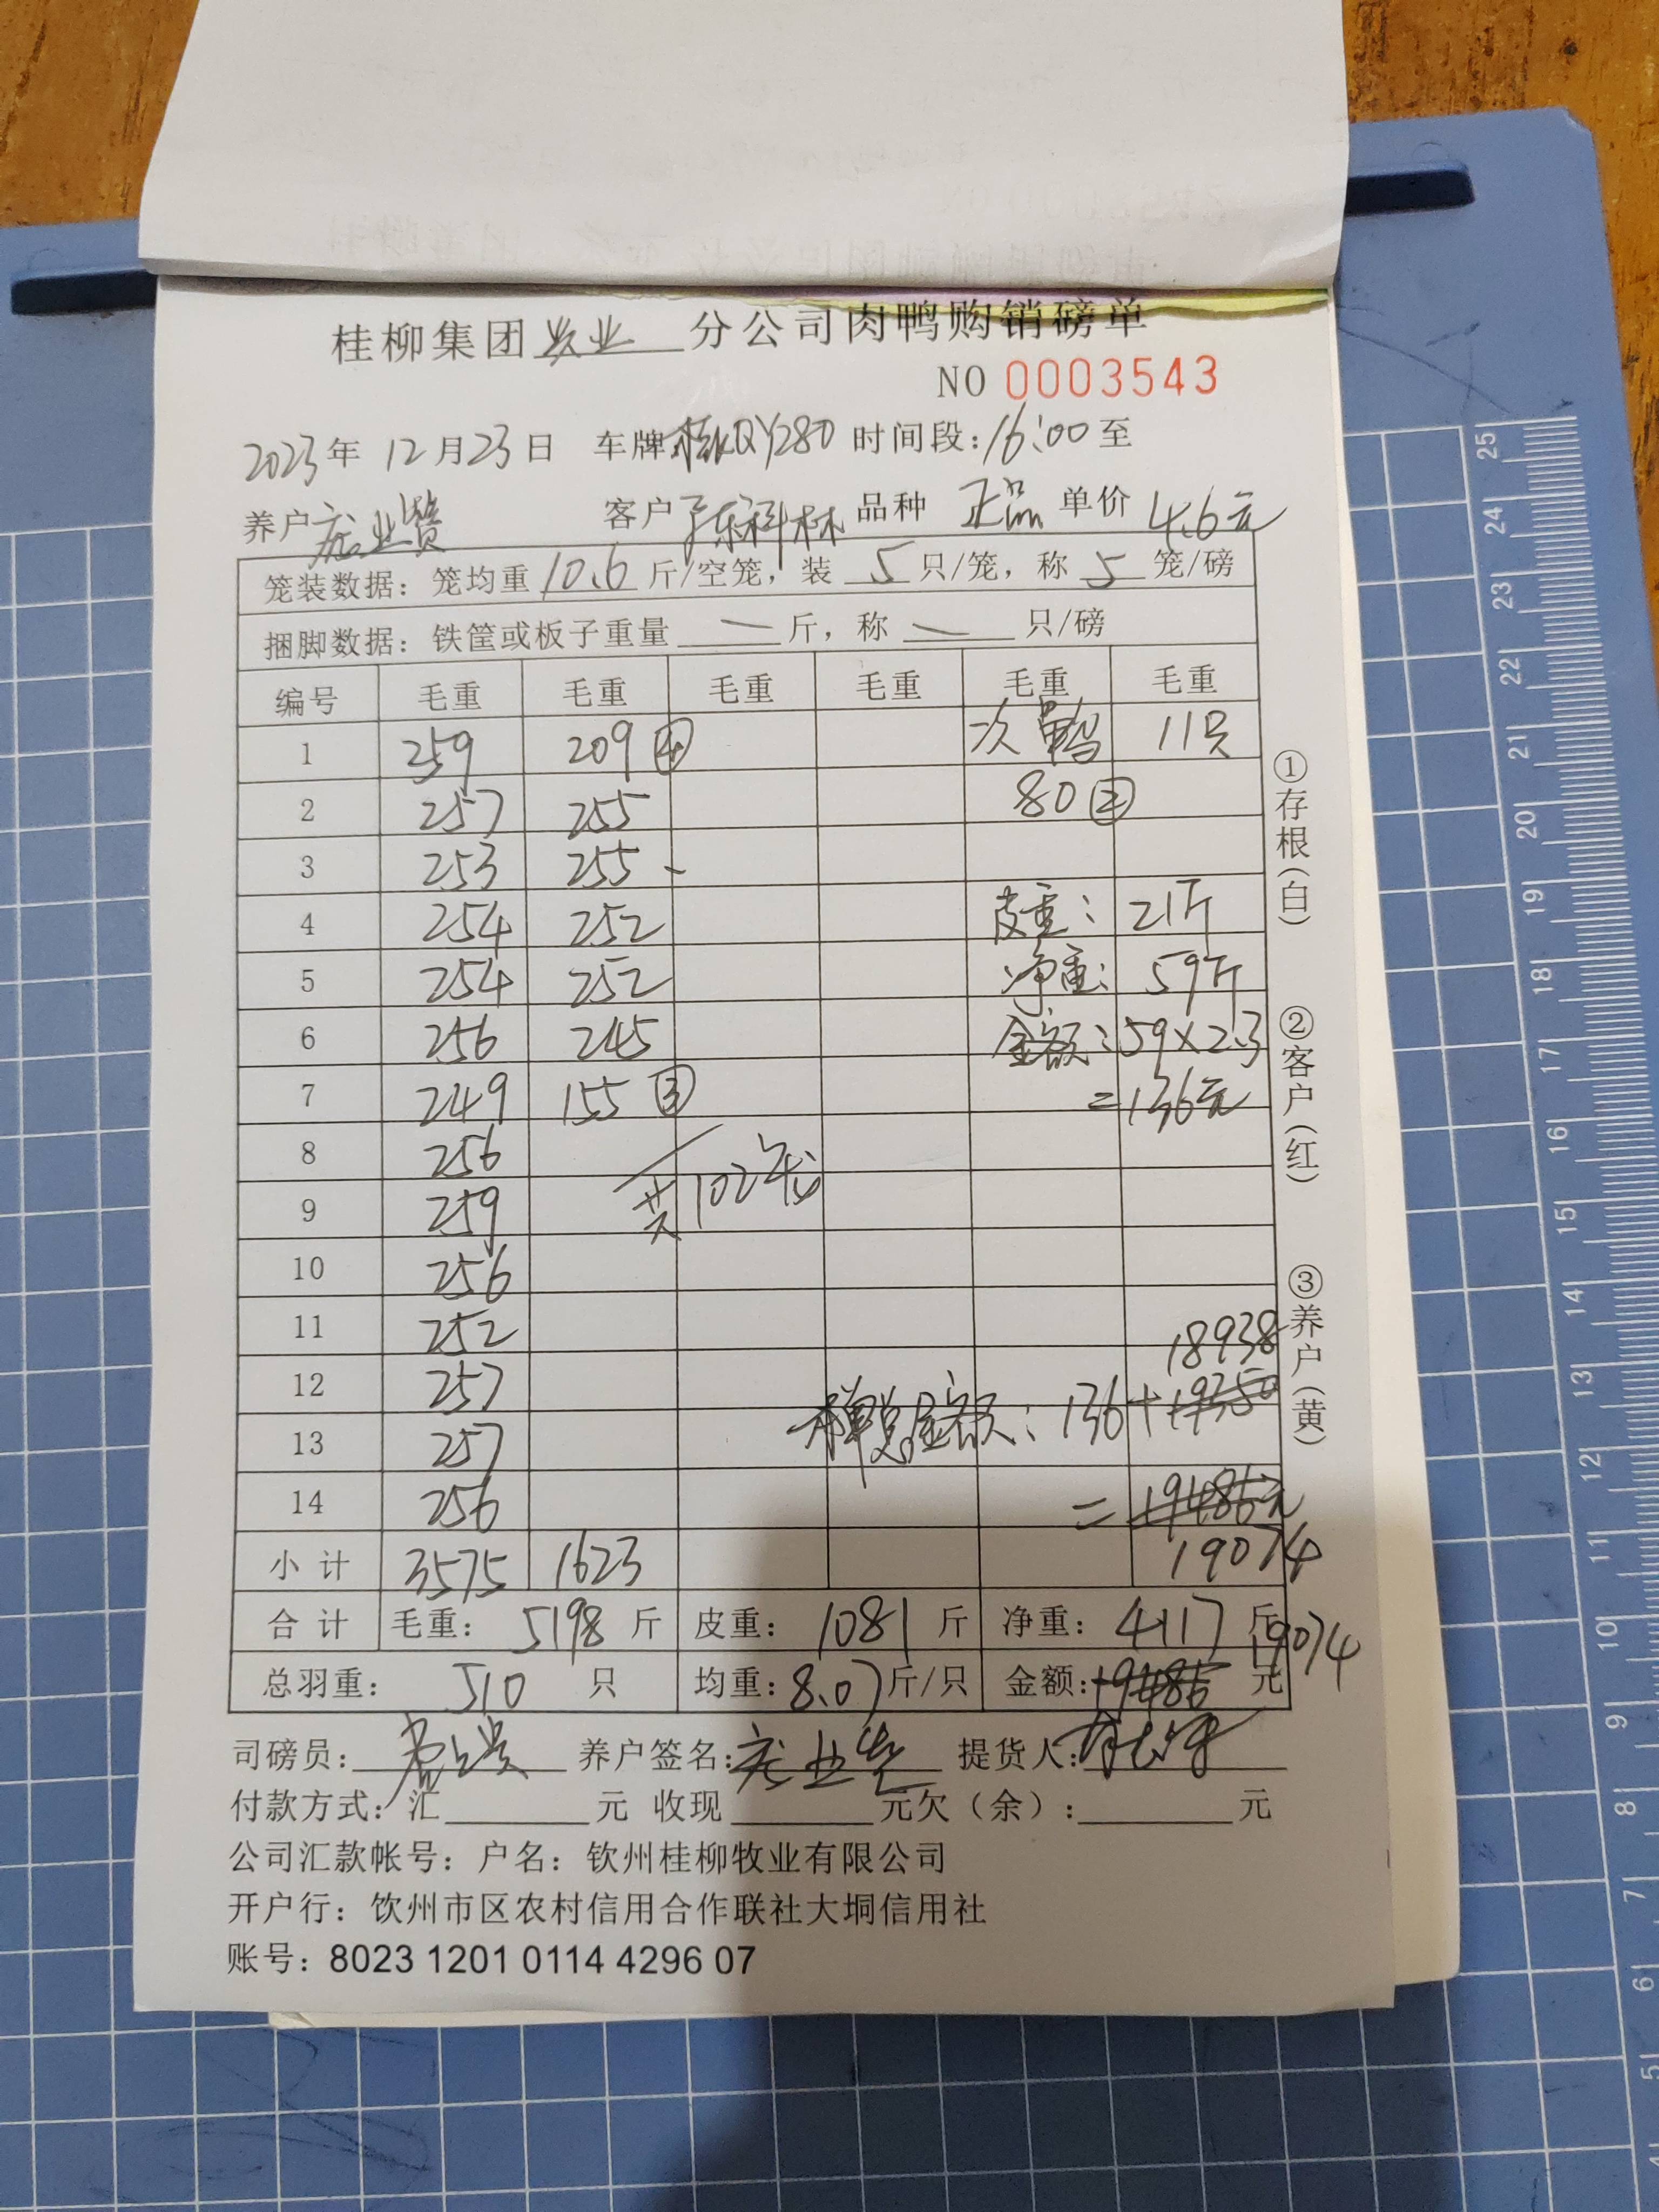 桂柳集团 牧业 分公司肉鸭购销磅单
NO 0003543
2023年 12月23日 车牌桂KQY280 时间段:16:00至
养户 庞业赞 客户 陈科林 品种 正品 单价 4.6元
笼装数据: 笼均重 10.6 斤/空笼, 装 5 只/笼, 称 5 笼/磅
捆脚数据: 铁筐或板子重量 — 斤, 称 — 只/磅
编号 毛重 毛重 毛重 毛重 毛重 毛重
1 259 209④ 次鸭 11只
2 257 255 80②
3 253 255
4 254 252 皮重: 21斤
5 254 252 净重: 59斤
6 256 245 金额: 59×2.3
7 249 155③ =136元
8 256
9 259 共102笼
10 256
11 252 18938
12 257 本单总金额: 136+19350
13 257
14 256 = 19486元
小计 3575 1623 19074
合计 毛重: 5198 斤 皮重: 1081 斤 净重: 4117 斤
19074
总羽重: 510 只 均重: 8.07 斤/只 金额: 19486 元
司磅员: 养户签名: 庞业赞 提货人:
付款方式: 汇 元 收现 元欠(余): 元
公司汇款帐号: 户名: 钦州桂柳牧业有限公司
开户行: 钦州市区农村信用合作联社大垌信用社
账号: 8023 1201 0114 4296 07
①存根(白)
②客户(红)
③养户(黄)
25
24
23
22
21
20
19
18
17
16
15
14
13
12
11
10
9
8
7
6
5